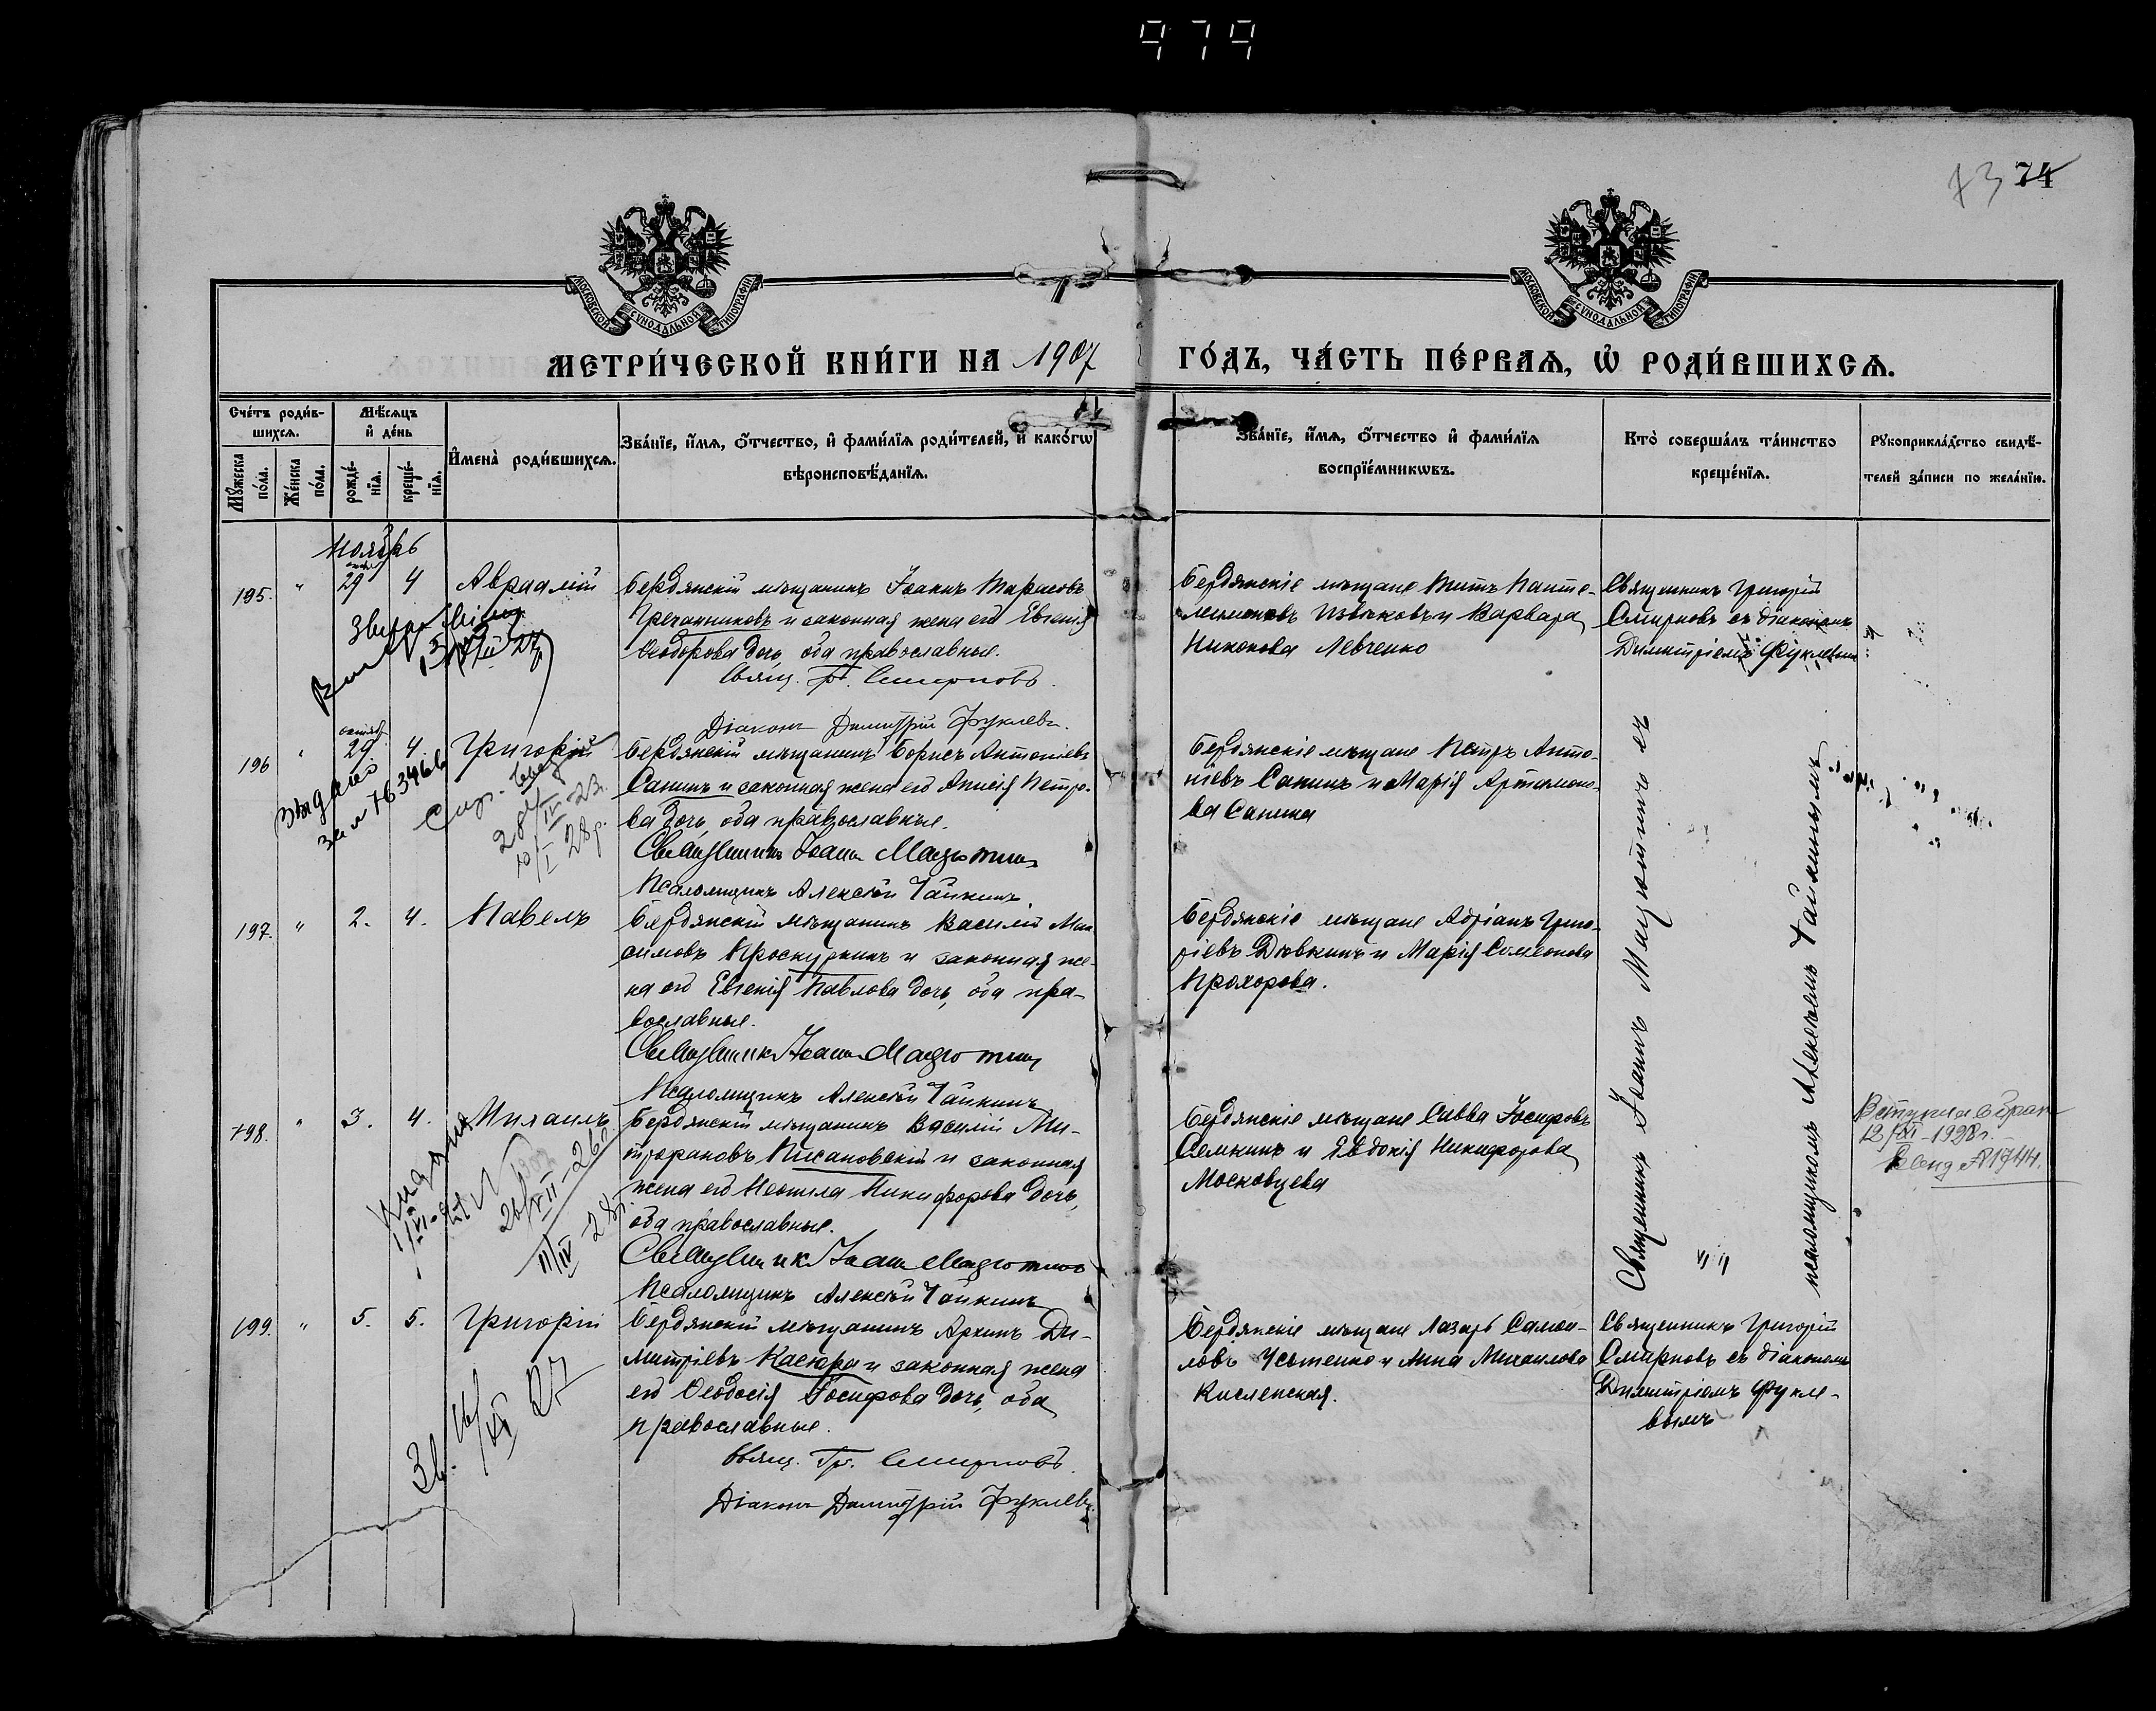 979
73 74
МОСКОВСКОЙ СѴНОДАЛЬНОЙ ТИПОГРАФІИ
МОСКОВСКОЙ СѴНОДАЛЬНОЙ ТИПОГРАФІИ
МЕТРИ́ЧЕСКОЙ КНИ́ГИ НА 1907 ГО́ДЪ, ЧА́СТЬ ПЕ́РВАѦ, Ѡ҆ РОДИ́ВШИХСѦ.
Сче́тъ роди́в-
шихсѧ.
Мꙋ́жеска
по́ла.
Же́нска
по́ла.
Мѣ́сѧцъ
и҆ де́нь
рожде́-
нїѧ.
креще́-
нїѧ.
И҆мена̀ роди́вшихсѧ.
Зва́нїе, и҆́мѧ, ѻ҆́тчество, и҆ фами́лїѧ роди́телей, и҆ како́гѡ
вѣроисповѣ́данїѧ.
Зва́нїе, и҆́мѧ, ѻ҆́тчество и҆ фами́лїѧ
воспрїе́мникѡвъ.
Кто̀ соверша́лъ та́инство
креще́нїѧ.
Рꙋкоприкла́дство свидѣ́-
телей за́писи по жела́нїю.
Ноябрь
195. " 29 4 Авраамій
Бердянскій мѣщанинъ Іоаннъ Тарасовъ
Гречанниковъ и законная жена его Евгенія
Ѳеодорова дочь, оба православные.
Свящ. Гр. Смирновъ.
Діаконъ Димитрій Фуклевъ.
Бердянскіе мѣщане Титъ Панте-
леимоновъ Извѣковъ и Варвара
Никонова Левченко
Священникъ Григорій
Смирновъ съ діакономъ
Димитріемъ Фуклевым
196 " октяб. 29 4. Григорій
Бердянскій мѣщанинъ Борисъ Антоніевъ
Санинъ и законная жена его Анисія Петро-
ва дочь, оба православные.
Священникъ Іоаннъ Мацютинъ
Псаломщикъ Алексѣй Чайкинъ
Бердянскіе мѣщане Петръ Анто-
ніевъ Санинъ и Марія Артамоно-
ва Санина
Видано
за № 76346
28 г.
Священникъ Іоаннъ Мацютинъ съ
псаломщикомъ Алексѣемъ Чайкинымъ
197. " 2. 4. Павелъ
Бердянскій мѣщанинъ Василій Мак
симовъ Проскуркинъ и законная же-
на его Евгенія Павлова дочь, оба пра-
вославные.
Священникъ Іоаннъ Мацютинъ
Псаломщикъ Алексѣй Чайкинъ
Бердянскіе мѣщане Адріанъ Григо-
ріевъ Дювкинъ и Марія Симеонова
Прохорова.
198. " 3. 4. Михаилъ
Бердянскій мѣщанинъ Василій Ми-
трофановъ Писановскій и законная
жена его Неонила Никифорова дочь,
оба православные.
Священникъ Іоаннъ Мацютинъ
Псаломщикъ Алексѣй Чайкинъ
Бердянскіе мѣщане Савва Іосифовъ
Семкинъ и Евдокія Никифорова
Московцева
Вступил в брак
12/XI-1928 г.
№ 1744.
11/IV 28 г.
199. " 5. 5. Григорій
Бердянскій мѣщанинъ Архипъ Ди-
митріевъ Касюра и законная жена
его Ѳеодосія Іосифова дочь, оба
православные.
Свящ. Гр. Смирновъ.
Діаконъ Димитрій Фуклевъ.
Бердянскіе мѣщане Лазарь Самои-
ловъ Устенко и Анна Михаилова
Кисленская.
Священникъ Григорій
Смирновъ съ діакономъ
Димитріемъ Фукле-
вымъ
Зв. 16/XI 27